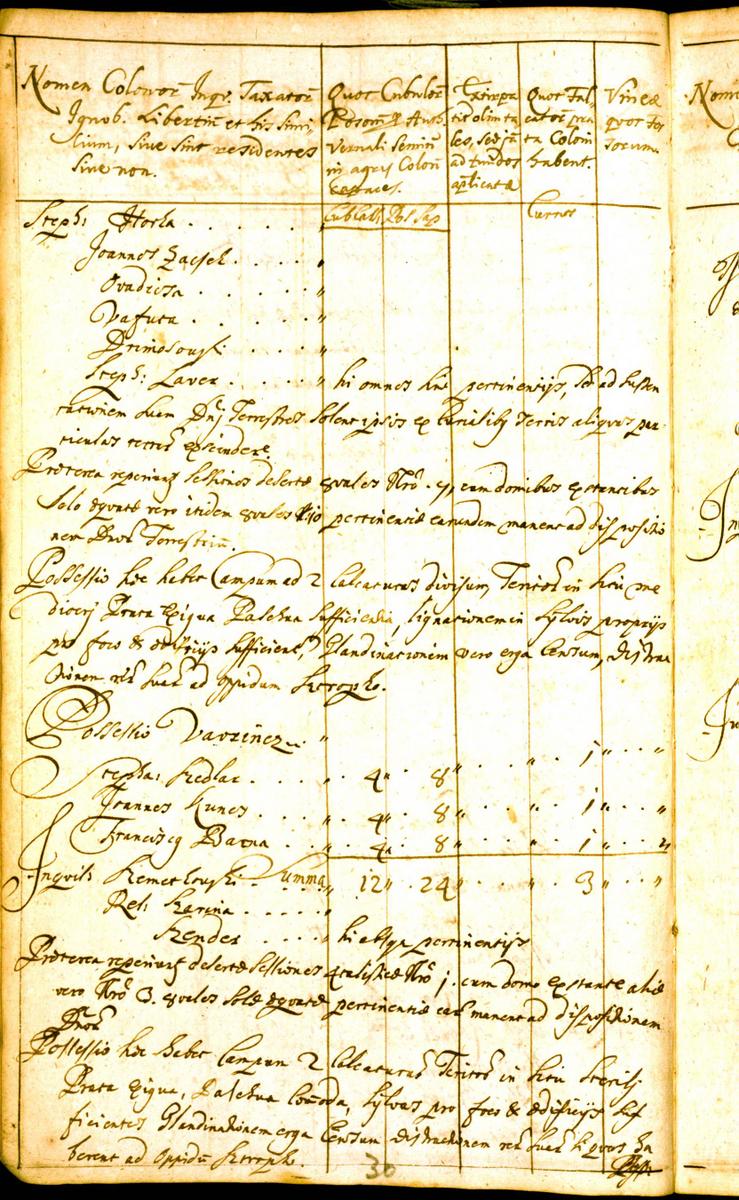 Nomen Colonor̄ Inqv. Taxator̄
Ignob. Libertin̄ et his simi
lium, sive sint residentes
sive non.
Quot Cubulor̄
Poson̄ Auth.
Vernali Semin̄
in agris Colon̄
capaces.
Extirpa
tio olim ta
les, sed jā
ad fundos
applicatæ
Quot Fal
cator̄ pra
ta Coloni
habent.
Vineæ
quot Fos
sorum.
Steph: Horka . . . . . . "
Cub Calt. Pos Sap
Currus
Joannes Zacsel . . . . "
Ovadicsa . . . . . "
Vafuta . . . . . "
Drinosouski . . . . "
Steph: Laver . . . . . " hi omnes sine pertinentijs, sed ad susten
tationem suam Dnj Terrestres solent ipsis ex Curialibq terris aliquas par
ticulas terrar̄ excindere.
Præterea reperiunt sessiones desertæ 8vales Nrō . 7, cum domibus extantibus
solo æquatæ vero itidem 8vales N: 10 pertinentiæ earundem manent ad dispositio
nem Dnor̄ Terrestriū.
Possessio hæc habet Campum ad 2 Calcaturas divisum, Territor̄ in situ me
diocrj Prata Exigua Pascua sufficientia, lignationem in sylvis proprijs
pro foco & ædificijs sufficient, Glandinationem vero erga Censum, distrac
tionem rer̄ suar̄ ad oppidum Sztropko.
Possessio Vavrinecz . . "
Stepha: Kedlar . . . . " . 4" . . 8" . . . " . . 1" . . "
Joannes Kunes . . . " . 4" . . 8" . . . " . . 1" . . "
Franciscq Bacsa . . . " . 4" . . 8" . . . " . . 1" . . "
Inqvil: Kemetlouski . . Summa " 12" . 24" . . . " . . 3" . . "
Rel: Karina . . . . . "
Kendes . . . . " hi absq pertinentijs
Præterea reperiunt desertæ sessiones 4talisticæ Nrō 1. cum domo extante aliæ
vero Nrō 3. 8vales solo æquatæ pertinentiæ ear̄ manent ad dispositionem
Dnor̄
Possessio hæc habet Campum 2 Calcaturar̄ Territor̄ in situ sterilj
Prata Exigua, Pascua Comoda, sylvas pro foco & ædificijs suf
ficientes Glandinationem erga Censum distractionem rer̄ suar̄ si quas ha
berent ad Oppidū Sztropk.
30